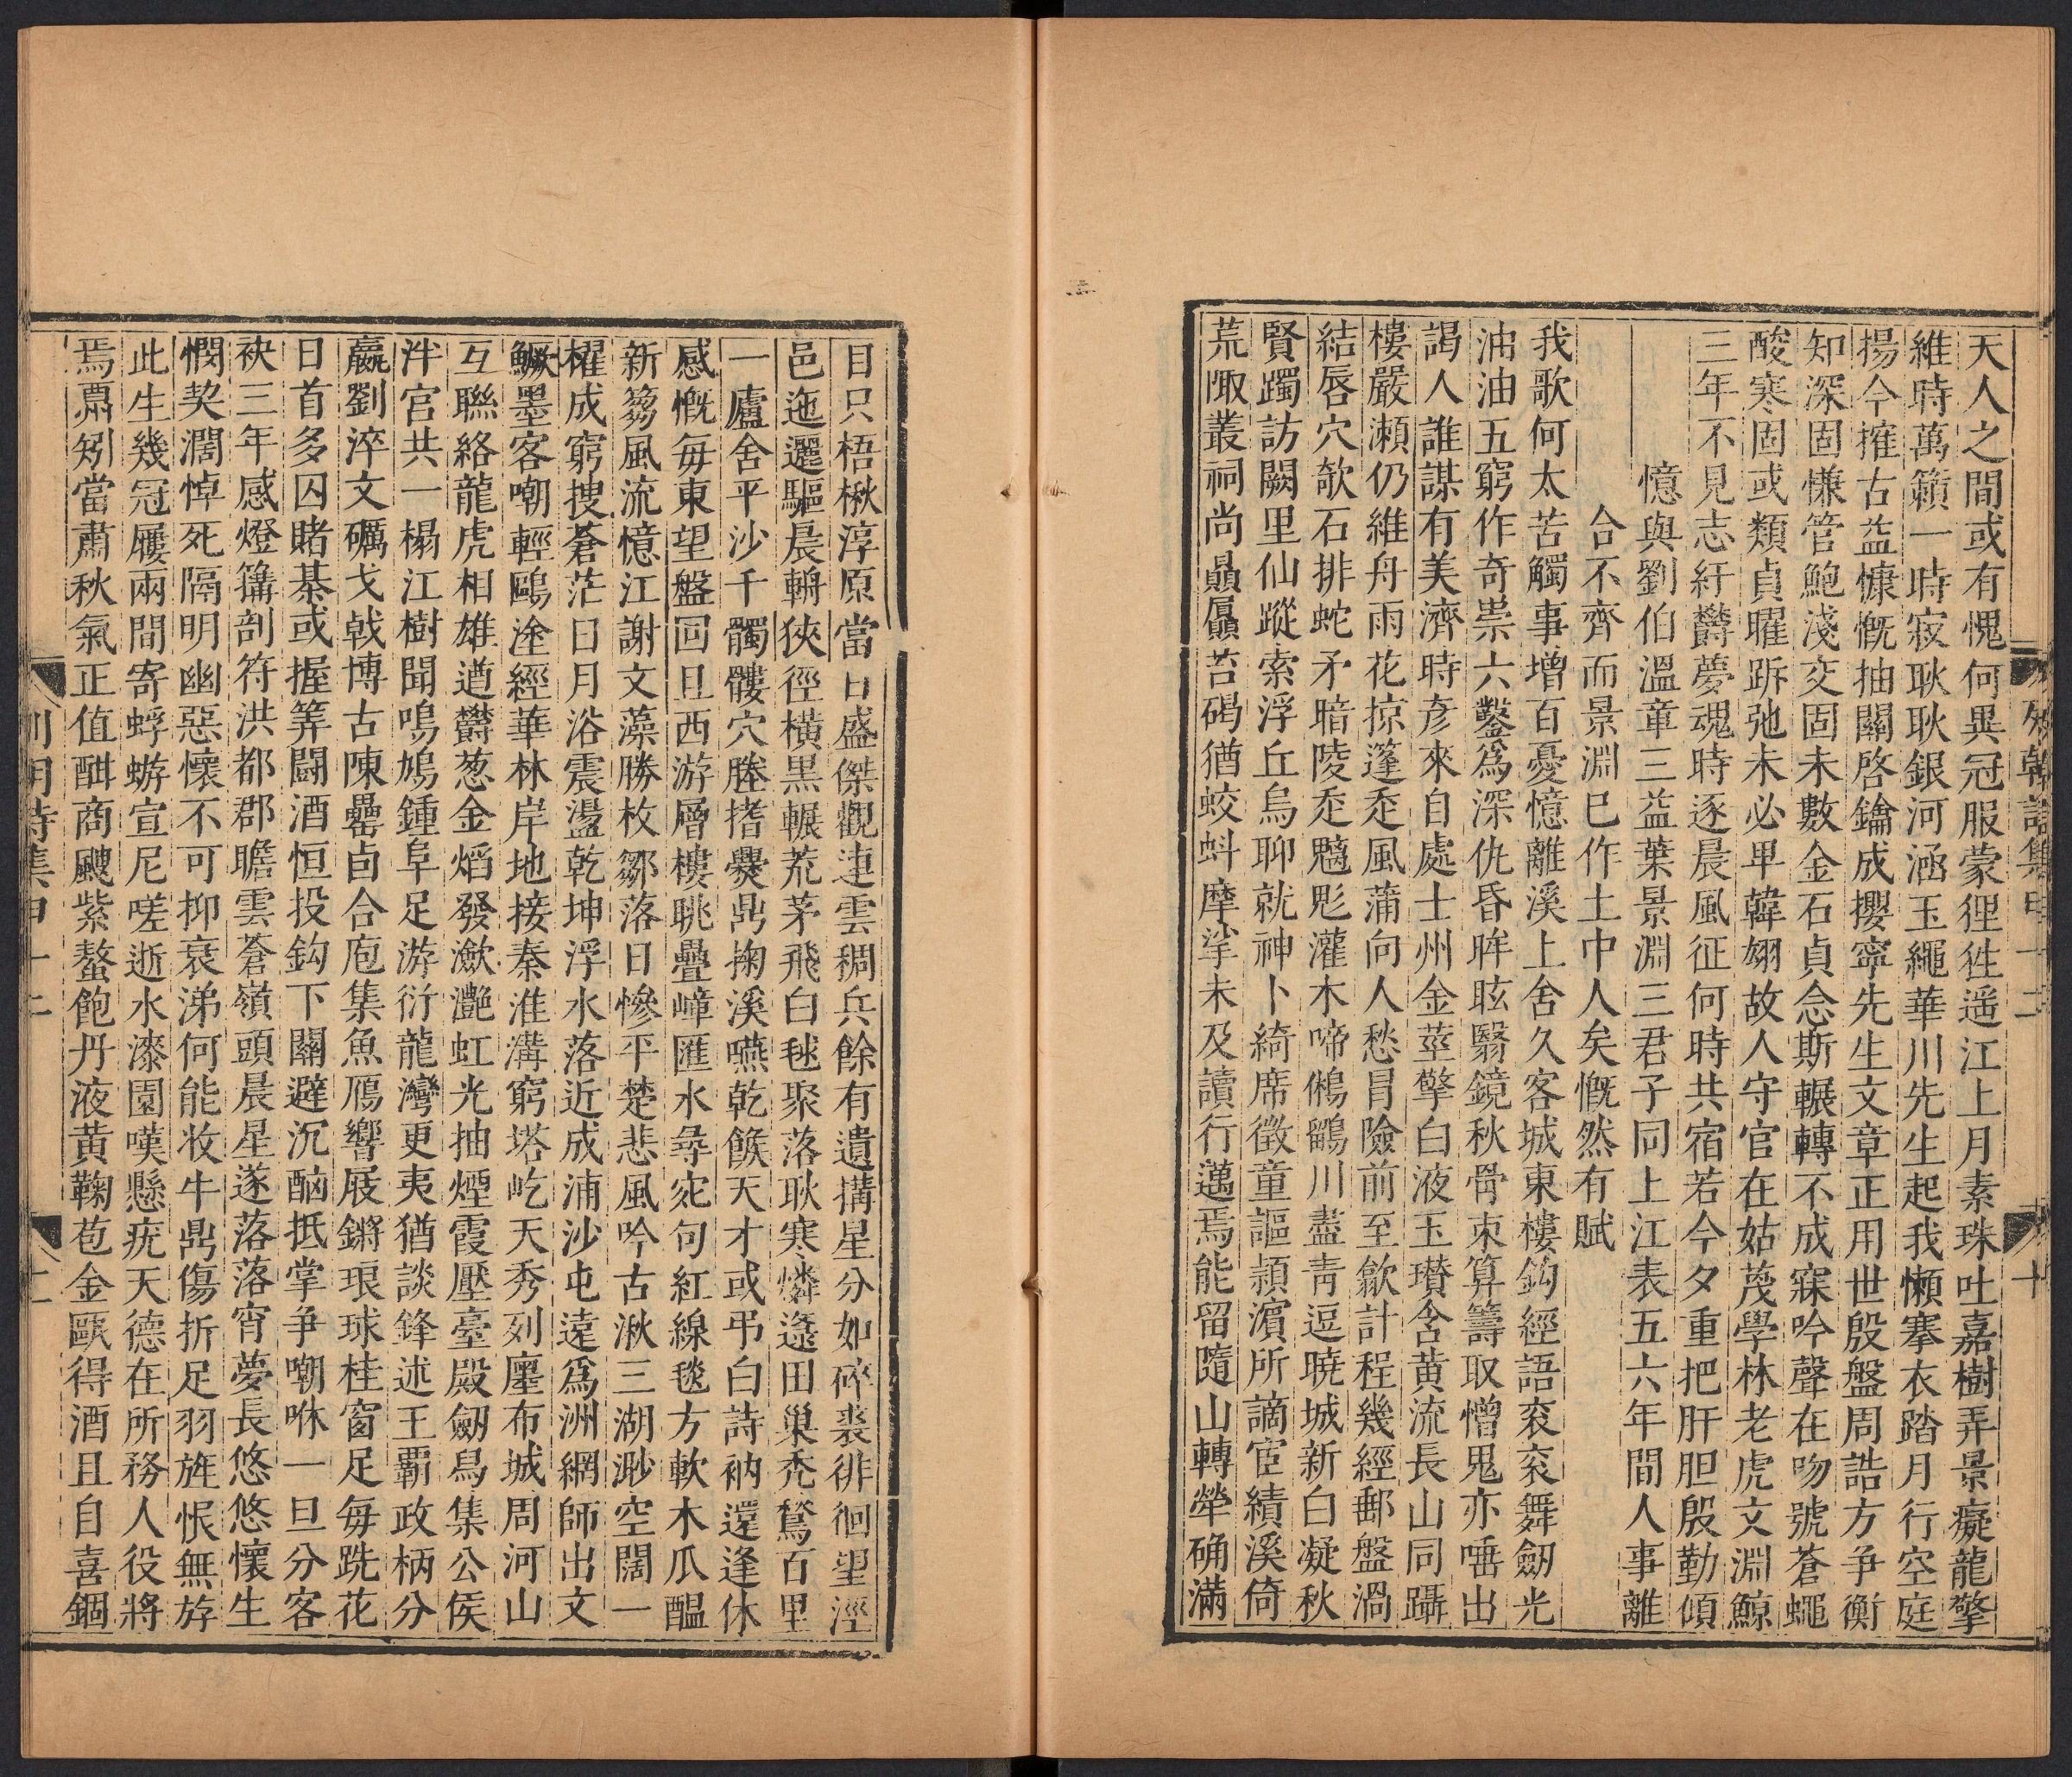 天人之間或有愧何異冠服蒙狸狌遥江上月素珠吐嘉樹弄景癡龍擎
維時萬籟一時寂耿耿銀河涵玉繩華川先生起我懶搴衣踏月行空庭
揚今搉古益慷慨抽關啓鑰成攖寧先生文章正用世殷盤周誥方争衡
知深固慊管鮑淺交固未數金石貞念斯輾轉不成寐吟聲在吻號蒼蠅
酸寒固或類貞曜跅弛未必卑韓翃故人守官在姑蔑學林老虎文淵鯨
三年不見志紆欝夢魂時逐晨風征何時共宿若今夕重把肝胆殷勤傾
憶與劉伯溫章三益葉景淵三君子同上江表五六年間人事離
合不齊而景淵巳作土中人矣慨然有賦
我歌何太苦觸事增百憂憶離溪上舍久客城東樓鈎經語衮衮舞劒光
油油五窮作奇祟六鑿爲深仇昏眸眩翳鏡秋骨束算籌取憎鬼亦唾出
謁人誰謀有美濟時彦來自處士州金莖擎白液玉瓚含黄流長山同躡
樓嚴瀬仍維舟雨花掠篷歪風蒲向人愁冒險前至歙計程幾經郵盤渦
結唇穴欹石排蛇矛暗陵歪魑魃灌木啼鵂鶹川盡青逗曉城新白凝秋
賢躅訪闕里仙蹤索浮丘烏聊就神卜綺席徵童謳潁濱所謫宦績溪倚
荒陬叢祠尚贔屭苔碣猶蛟蚪摩挲未及讀行邁焉能留隨山轉犖确滿
目只梧楸淳原當日盛傑觀連雲稠兵餘有遺搆星分如碎裘徘徊望涇
邑迤邐驅晨輈狹徑横黒輾荒茅飛白毬聚落耿寒燐邃田巢禿鶖百里
一廬舍平沙千髑髏穴塍搘㸑鼎掬溪嚥乾餱天才或弔白詩衲還逢休
感慨每東望盤回且西游層樓眺疊嶂匯水尋宛句紅線毯方軟木瓜醖
新篘風流憶江謝文藻勝枚鄒落日慘平楚悲風吟古湫三湖渺空闊一
櫂成窮搜蒼茫日月浴震盪乾坤浮水落近成浦沙屯遠爲洲網師出文
鱖墨客嘲輕鷗塗經華林岸地接秦淮溝窮塔屹天秀列廛布城周河山
互聯絡龍虎相雄遒欝葱金熖發瀲灔虹光抽煙霞壓臺殿劒舄集公侯
泮宫共一榻江樹聞鳴鳩鍾阜足游衍龍灣更夷猶談鋒述王覇政柄分
嬴劉淬文礪戈㦸博古陳罍卣合庖集魚鴈響屐鏘琅球桂窗足每跣花
日首多囚賭棊或握筭鬪酒恒投鈎下關避沉酗抵掌争嘲咻一旦分客
袂三年感燈篝剖符洪都郡瞻雲蒼嶺頭晨星遂落落宵夢長悠悠懷生
憫契濶悼死隔明幽惡懷不可抑衰涕何能收牛鼎傷折足羽旌恨無斿
此生幾冠屨兩間寄蜉蝣宣尼嗟逝水漆園嘆懸疣天德在所務人役將
焉𩰾矧當肅秋氣正值酣商颼紫螯飽丹液黄鞠苞金甌得酒且自喜錮